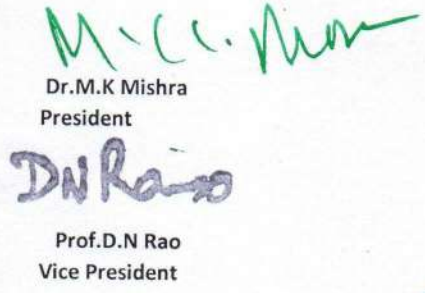 Dr.M.K Mishra
President
DNRao
Prof.D.N Rao
Vice President